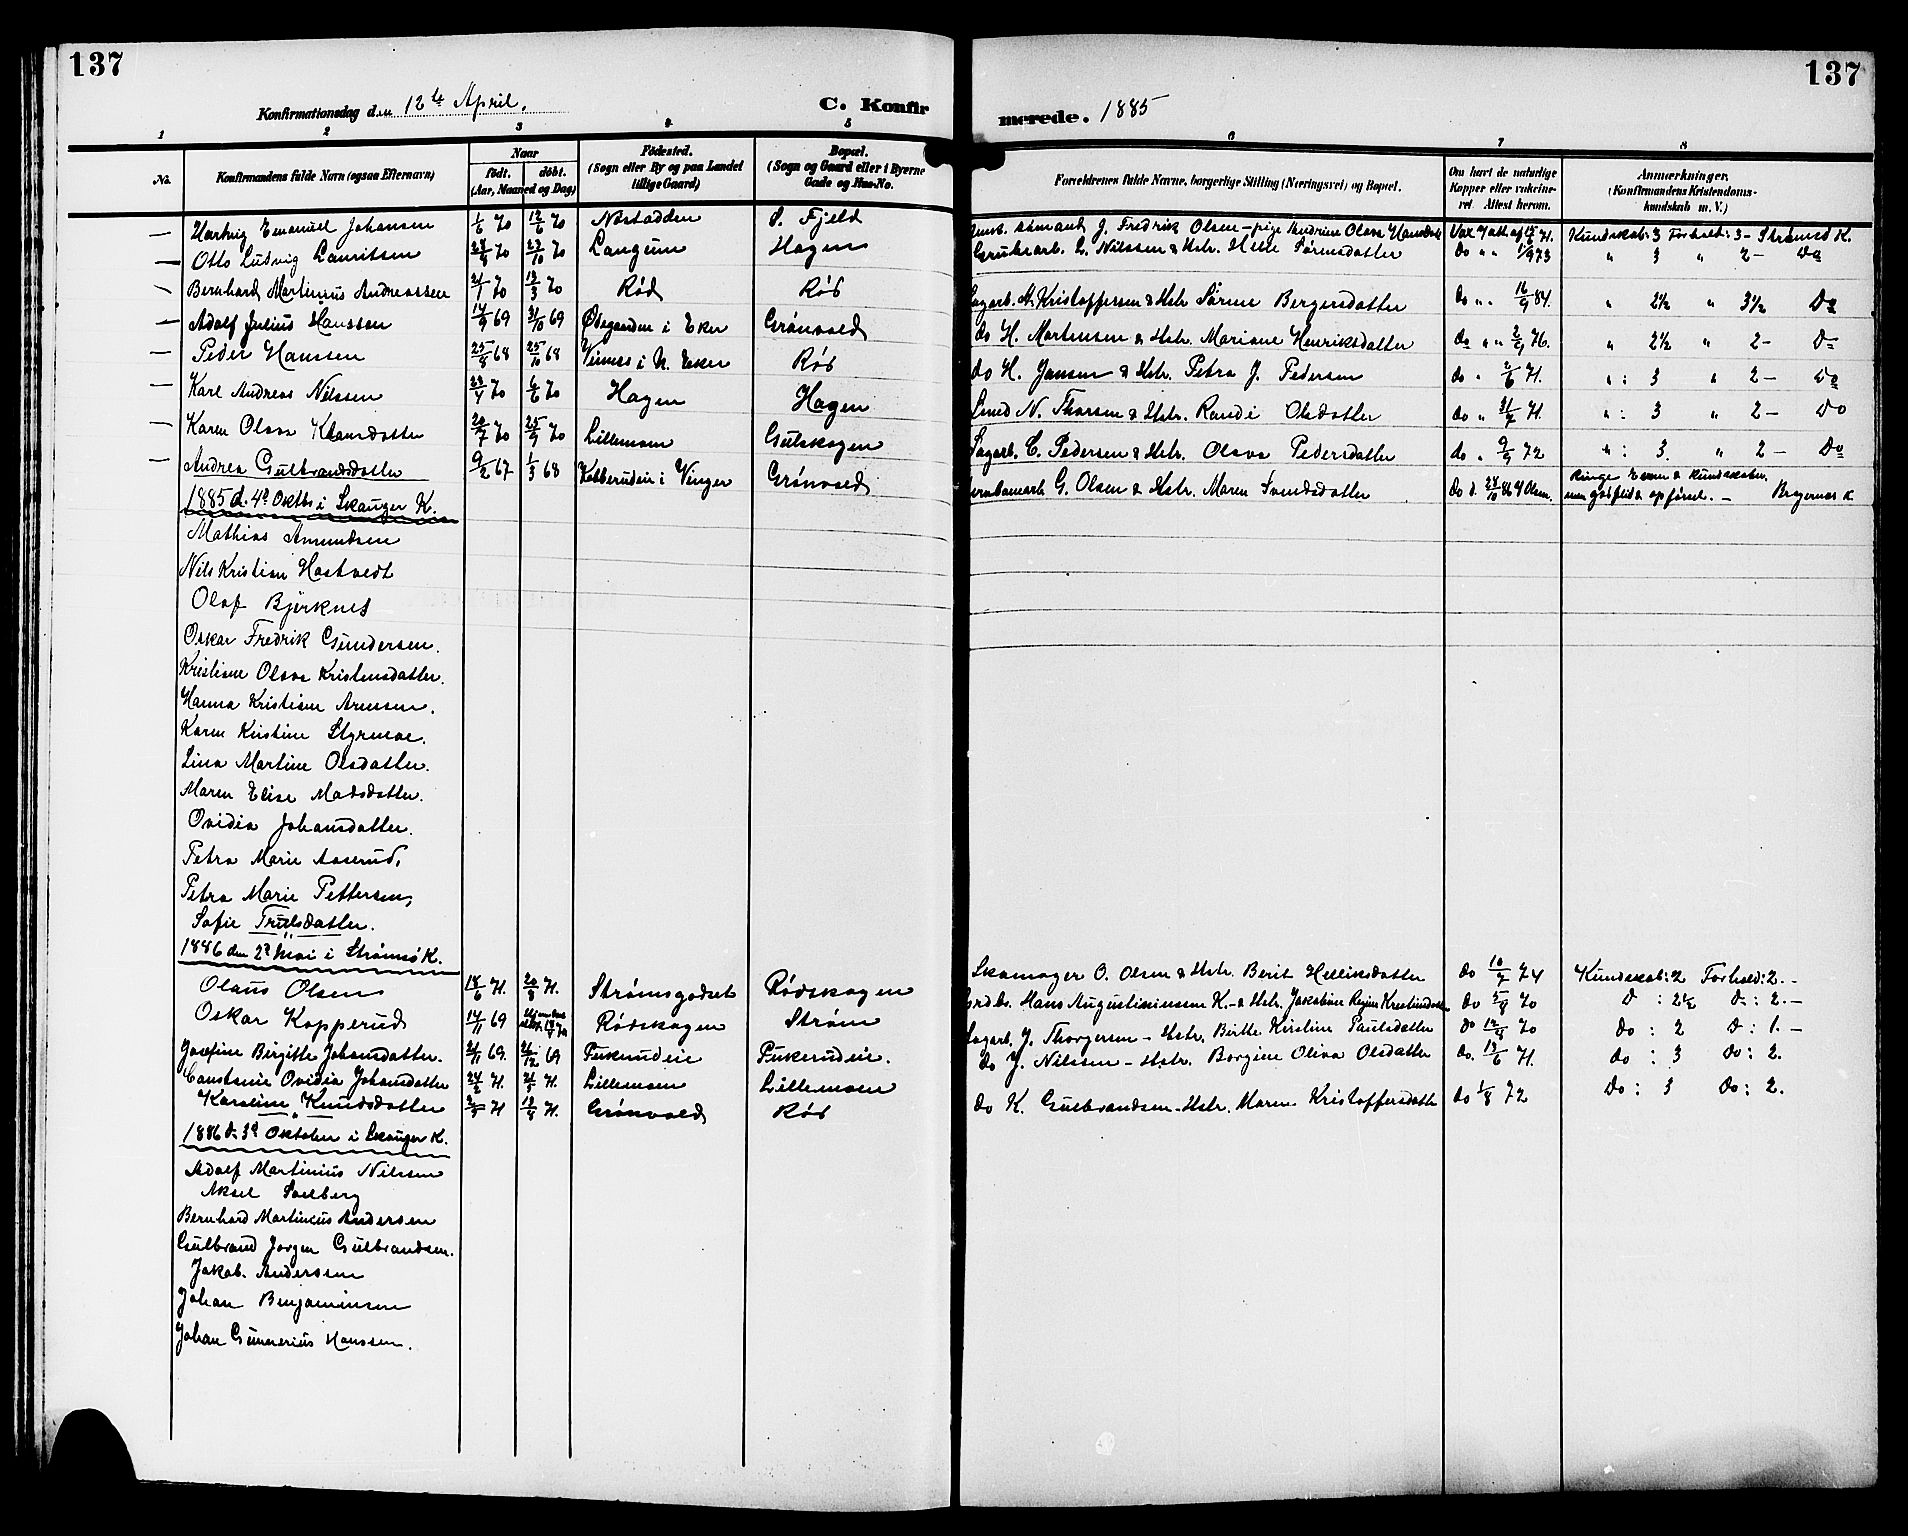 137
137
Konfirmationsdag den 12te April. C. Konfirmerede. 1885
1 2 3 4 5 6 7 8
No. Konfirmandens fulde Navn (ogsaa Efternavn) Naar født. døbt. (Aar, Maaned og Dag) Fødested. (Sogn eller By og paa Landet tillige Gaard) Bopæl. (Sogn og Gaard eller i Byerne Gade og Hus-No. Forældrenes fulde Navne, borgerlige Stilling (Næringsvei) og Bopæl. Om havt de naturlige Kopper eller vakcineret Attest herom. Anmærkninger. (Konfirmandens Kristendomskundskab m. V.)
— Hartvig Emanuel Johansen 1/6 70 12/6 70 Nøstodden S. Fjeld J. Fredrik Olsen - pige Andrine Olava Vax Att af 15/6 71. Kundskab: 3 Forhold: 3- Strømsø K.
— Otto Ludvig Lauritsen 28/8 70 23/10 70 Langum Hagen Grubearb. L. Nilssen & Hstr. Helle Sørensdatter Do " " 1/9 73 " 3 " 2- Do
— Bernhard Martinius Andreassen 21/1 70 13/3 70 Rød Rød Sagarb. A. Kristoffersen & Hstr Sørine Bergersdatter Do " " 16/9 84. " 2½ " 3½ Do
— Adolf Julius Hanssen 14/9 69 31/10 69 Ødegaarden i Eker Grønvold do H. Mortensen & Hstr. Mariane Henriksdatter do " " 2/9 76. " 2½ " 2- Do
— Peder Hanssen 25/8 68 25/10 68 Vinnes i N. Eker Rød do H. Jansen & Hstr. Petra J. Pedersen do " 2/6 71. " : 3 " 2- Do
— Karl Andreas Nilssen 23/4 70 6/6 70 Hagen Hagen Smed N. Thorsen & Hstr. Randi Olsdatter do " 31/7 71. " : 3 " 2- Do
— Karen Olava Klausdatter 20/7 70 25/9 70 Lillemoen Gulskogen Sagarb. C. Pedersen & Hstr. Olava Pedersdatter do " 9/9 72 " : 3. " 2- Do
— Andrea Gulbrandsdatter 9/2 67 1/3 68 Kobberudeie i Vinger Grønvold Jernbanearb G. Olsen & Hstr. Maren Svendsdatter do d. 24/10 86 Olsen. Ringe Evner & Kundskaber, men god flid & opførsel. - Bragernes K
1885 d. 4de Oktbr i Skauger K.
Mathias Amundsen
Nils Kristian Hostvedt
Olaf Bjørknes
Oskar Fredrik Gundersen.
Kristiane Olava Kristensdatter.
Hanna Kristiane Arnesen.
Karen Kristine Styrmoe.
Lina Martine Olsdatter.
Maren Elise Madsdatter.
Ovidia Johansdatter.
Petra Marie Aaserud.
Petra Marie Pettersen,
Sofie Trulsdatter.
1886 den 2den Mai i Strømsø K.
Olaus Olsen 18/6 71. 20/8 71. Strømsgodset Rødskogen Skomager O. Olsen & Hstr. Berit Helliksdatter do 10/7 74 Kundskab: 2 Forhold: 2. -
Oskar Kopperud 14/11 69 Rødskogen Strøm Hans Augustinussen K. & Hstr. Jakobine Regine do 5/8 70 D : 2½ D: : 2. -
Josefine Birgitte Johansdatter. 21/11 69. 26/12 69 Fukerudeie Fukerudeie. Sagarb. J. Thorgersen - Hstr. Birthe Kristine Paulsdatter do 12/8 70 do : 2 D : 1. -
Constance Ovidia Johansdatter 24/2 71. 21/5 71. Lillemoen Lillemoen do J. Nilssen - Hstr. Borgine Oliva Olsdatter do. 13/6 71. do : 3 do: 2.
Karoline Knudsdatter 2/7 71 13/8 71. Grønvold Rød do K. Gulbrandsen - Hstr. Maren Kristoffersdatter do 1/8 72 Do : 3 do: 2.
1886 d. 3de Oktober i Skauger K.
Adolf Martinius Nilssen
Aksel Solberg
Bernhard Martinius Andersen
Gulbrand Jorgen Gulbrandsen.
Jakob. Andersen
Johan Benjaminsen
Johan Gunnerius Hanssen.